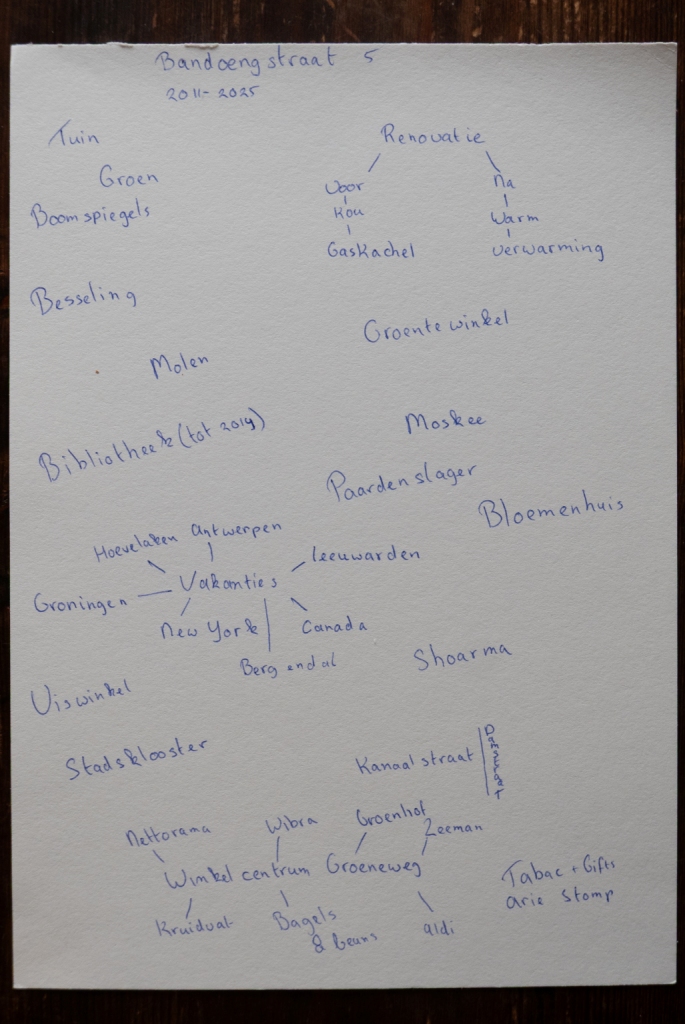 Bandoengstraat 5
2011-2025
Tuin
Renovatie
Groen
Voor
Na
Boomspiegels
Kou
Warm
Gaskachel
verwarming
Besseling
Groentewinkel
Molen
Bibliotheek (tot 2019)
Moskee
Paardenslager
Bloemenhuis
Hoevelaken
Antwerpen
Leeuwarden
Vakanties
Groningen
New York
Canada
Berg en dal
Shoarma
Viswinkel
Stadsklooster
Kanaalstraat
Damstraat
Nettorama
Wibra
Groenhof
Zeeman
Winkelcentrum Groeneweg
Tabac + Gifts
Arie Stomp
Kruidvat
Bagels
& beans
Aldi